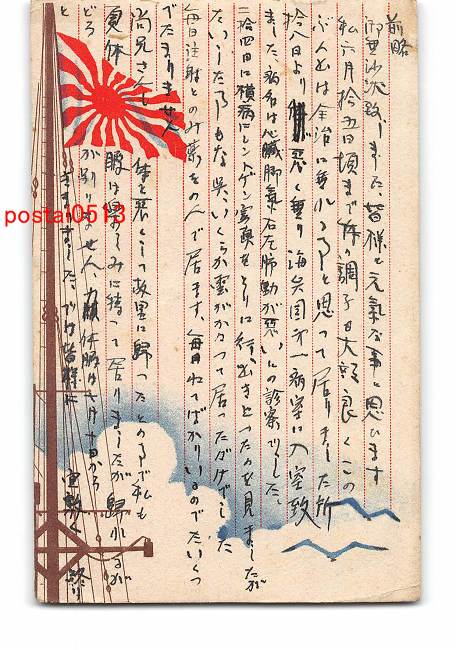 前略
御無沙汰致しました、皆様と元気な事と思ひます
私六月拾五日頃まで体の調子も大部良くこの
ぶんでは全治に至れるかと思って居りました所
拾八日より 悪く乗り海兵団第一病室に入室致
ました、病名は心臓脚氣右左肺動が悪いとの診察でした。
二拾四日に横病にレントゲン写真をとりに行、出き上ったのを見ましたが
たいした事もな 、いくらか雲がかかって居っただけでした
毎日注射とのみ薬をのんで居ます、毎日ねてばかりいるのでたいくつ
でたまりません
尚兄さんも 体を悪くして故里に歸ったとの事で私も
身体 賜は楽しみに待って居りましたが歸れるが
どう か判りません、 休暇は七月十日から
と きまりました、では皆様に 宜敷く 終り
postal0513